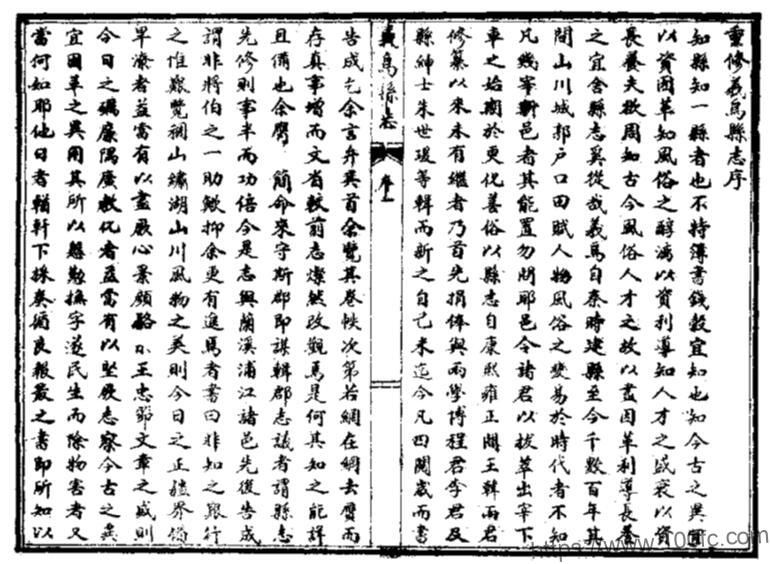 重修義烏縣志序
知縣知一縣者也不特簿書錢穀宜知也知今古之異宜
以資因革知風俗之醇漓以資利導知人才之盛衰以資
長養夫欲周知古今風俗人才之故以盡因革利導長養
之宜舍縣志奚從哉義烏自秦時建縣至今千數百年其
間山川城郭戶口田賦人物風俗之變易於時代者不知
凡幾宰斯邑者其能置勿問耶邑令諸君以拔萃出宰下
車之始期於更化善俗以縣志自康熙雍正間王韓兩君
修纂以來未有繼者乃首先捐俸與兩學博程君李君及
縣紳士朱世瑗等輯而新之自己未迄今凡四閱歲而書
義烏縣志 序
告成乞余言弁其首余覽其卷帙次第若網在綱去贋而
存真事增而文省較前志燦然改觀焉是何其知之能詳
且備也余膺 簡命來守斯郡即謀輯郡志議者謂縣志
先修則事半而功倍今是志與蘭溪浦江諸邑先後告成
謂非將伯之一助歟抑余更有進焉者書曰非知之艱行
之惟艱覽稠山繡湖山川風物之美則今日之正疆界備
旱潦者益當有以盡厥心景顏 王忠節文章之盛則
今日之礪廉隅廣教化者益當有以堅厥志察今古之異
宜因革之異用其所以懇勤撫字遂民生而除物害者又
當何如耶他日者輶軒下採奏循良報最之書即所知以
https://www.700fc.com